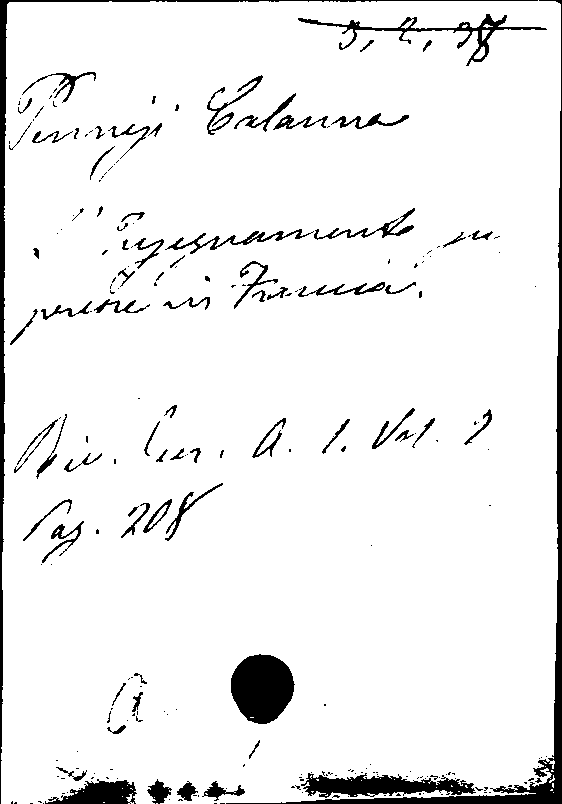 3, 2, 38
Pennisi Calanna
L'Insegnamento su
periore in Francia.
Riv. Eur. A. 1. Vol. 2
Pag. 208
A